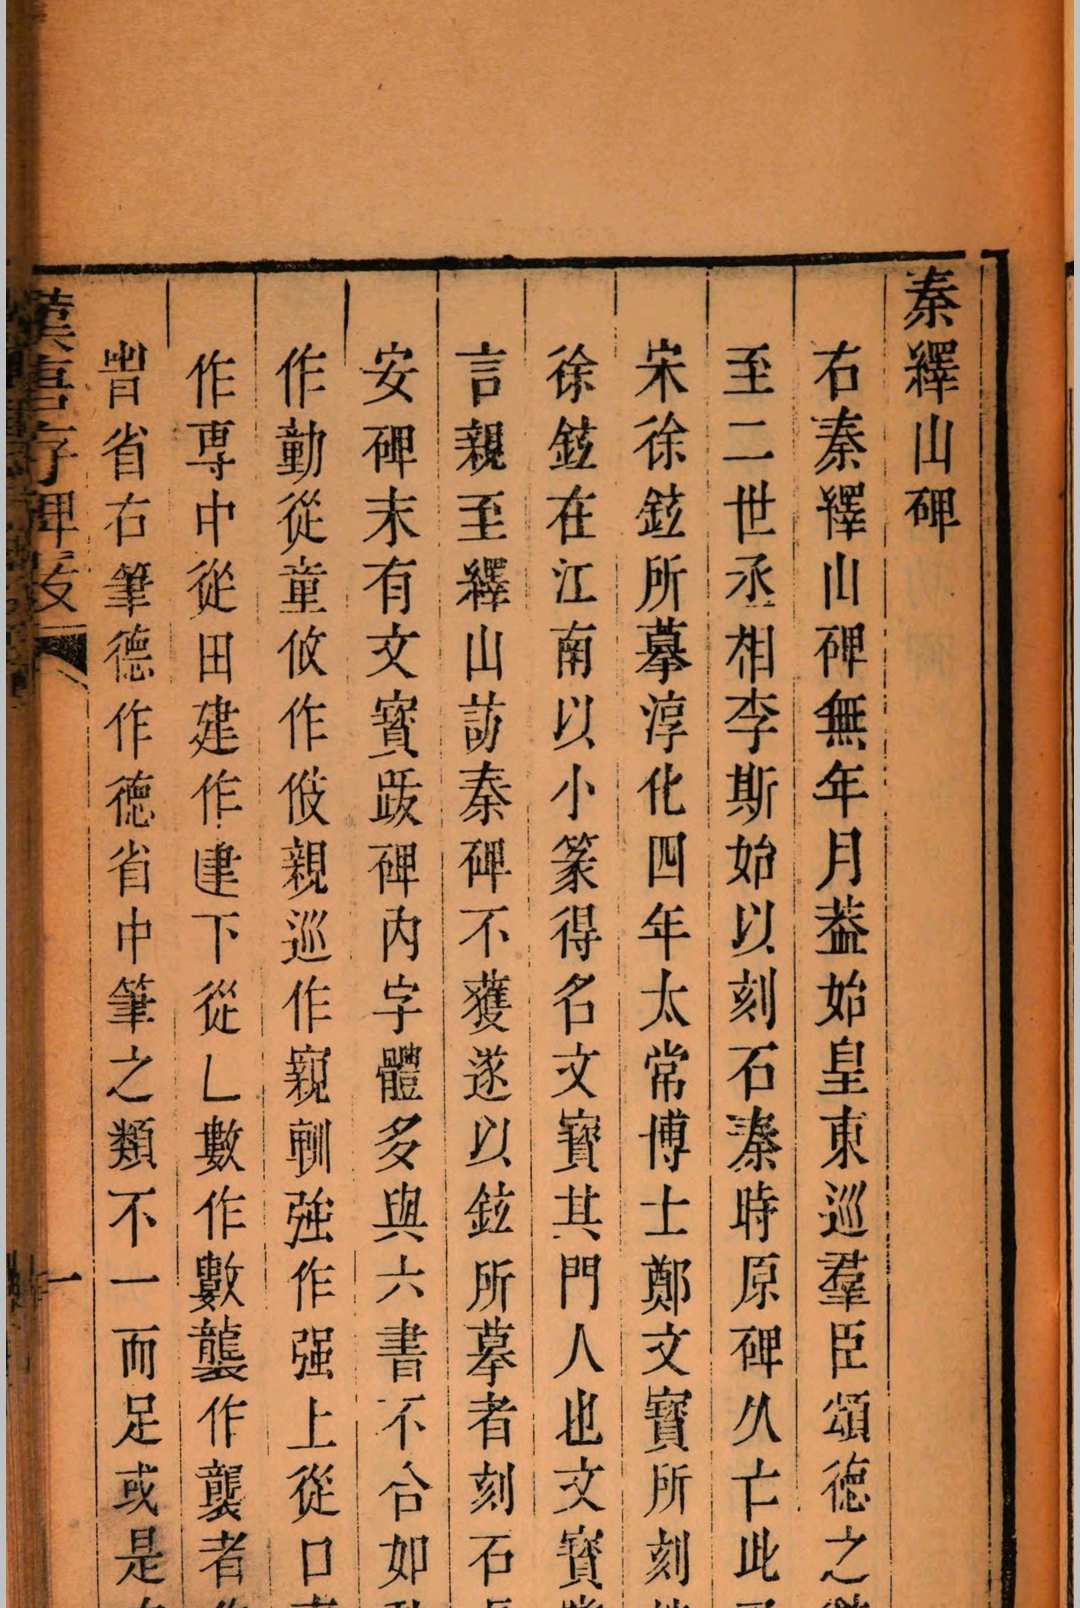 秦繹山碑
右秦繹山碑無年月葢始皇東巡羣臣頌德之
至二世丞相李斯始以刻石秦時原碑久亡此
宋徐鉉所摹淳化四年太常博士鄭文寳所刻
徐鉉在江南以小篆得名文寳其門人也文寳
言親至繹山訪秦碑不獲遂以鉉所摹者刻石
安碑末有文寳跋碑内字體多與六書不合如
作動從童攸作親巡作強作强上從口
作専中從田建作下從𠃊數作數龔作龔者
省右筆德作德省中筆之類不一而足或是
漢唐存碑跋
一